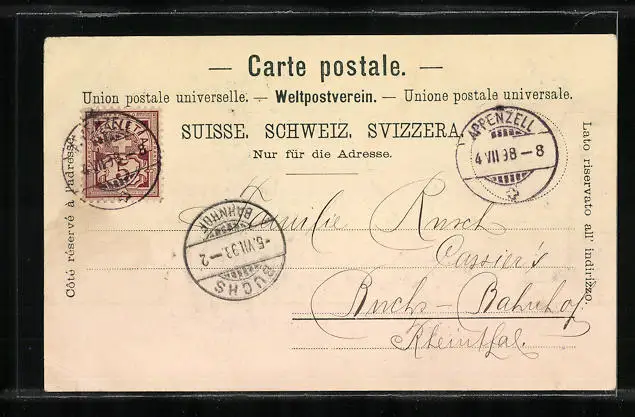 — Carte postale. —
Union postale universelle. — Weltpostverein. — Unione postale universale.
SUISSE. SCHWEIZ. SVIZZERA.
Nur für die Adresse.
Côté réservé à l'adresse.
Lato riservato all' indirizzo.
APPENZELL
4 VII 98 – 8
BUCHS
-5.VII.98.–2
BAHNHOF
Familie Rusch
Cassier's
Buchs-Bahnhof
Rheinthal.